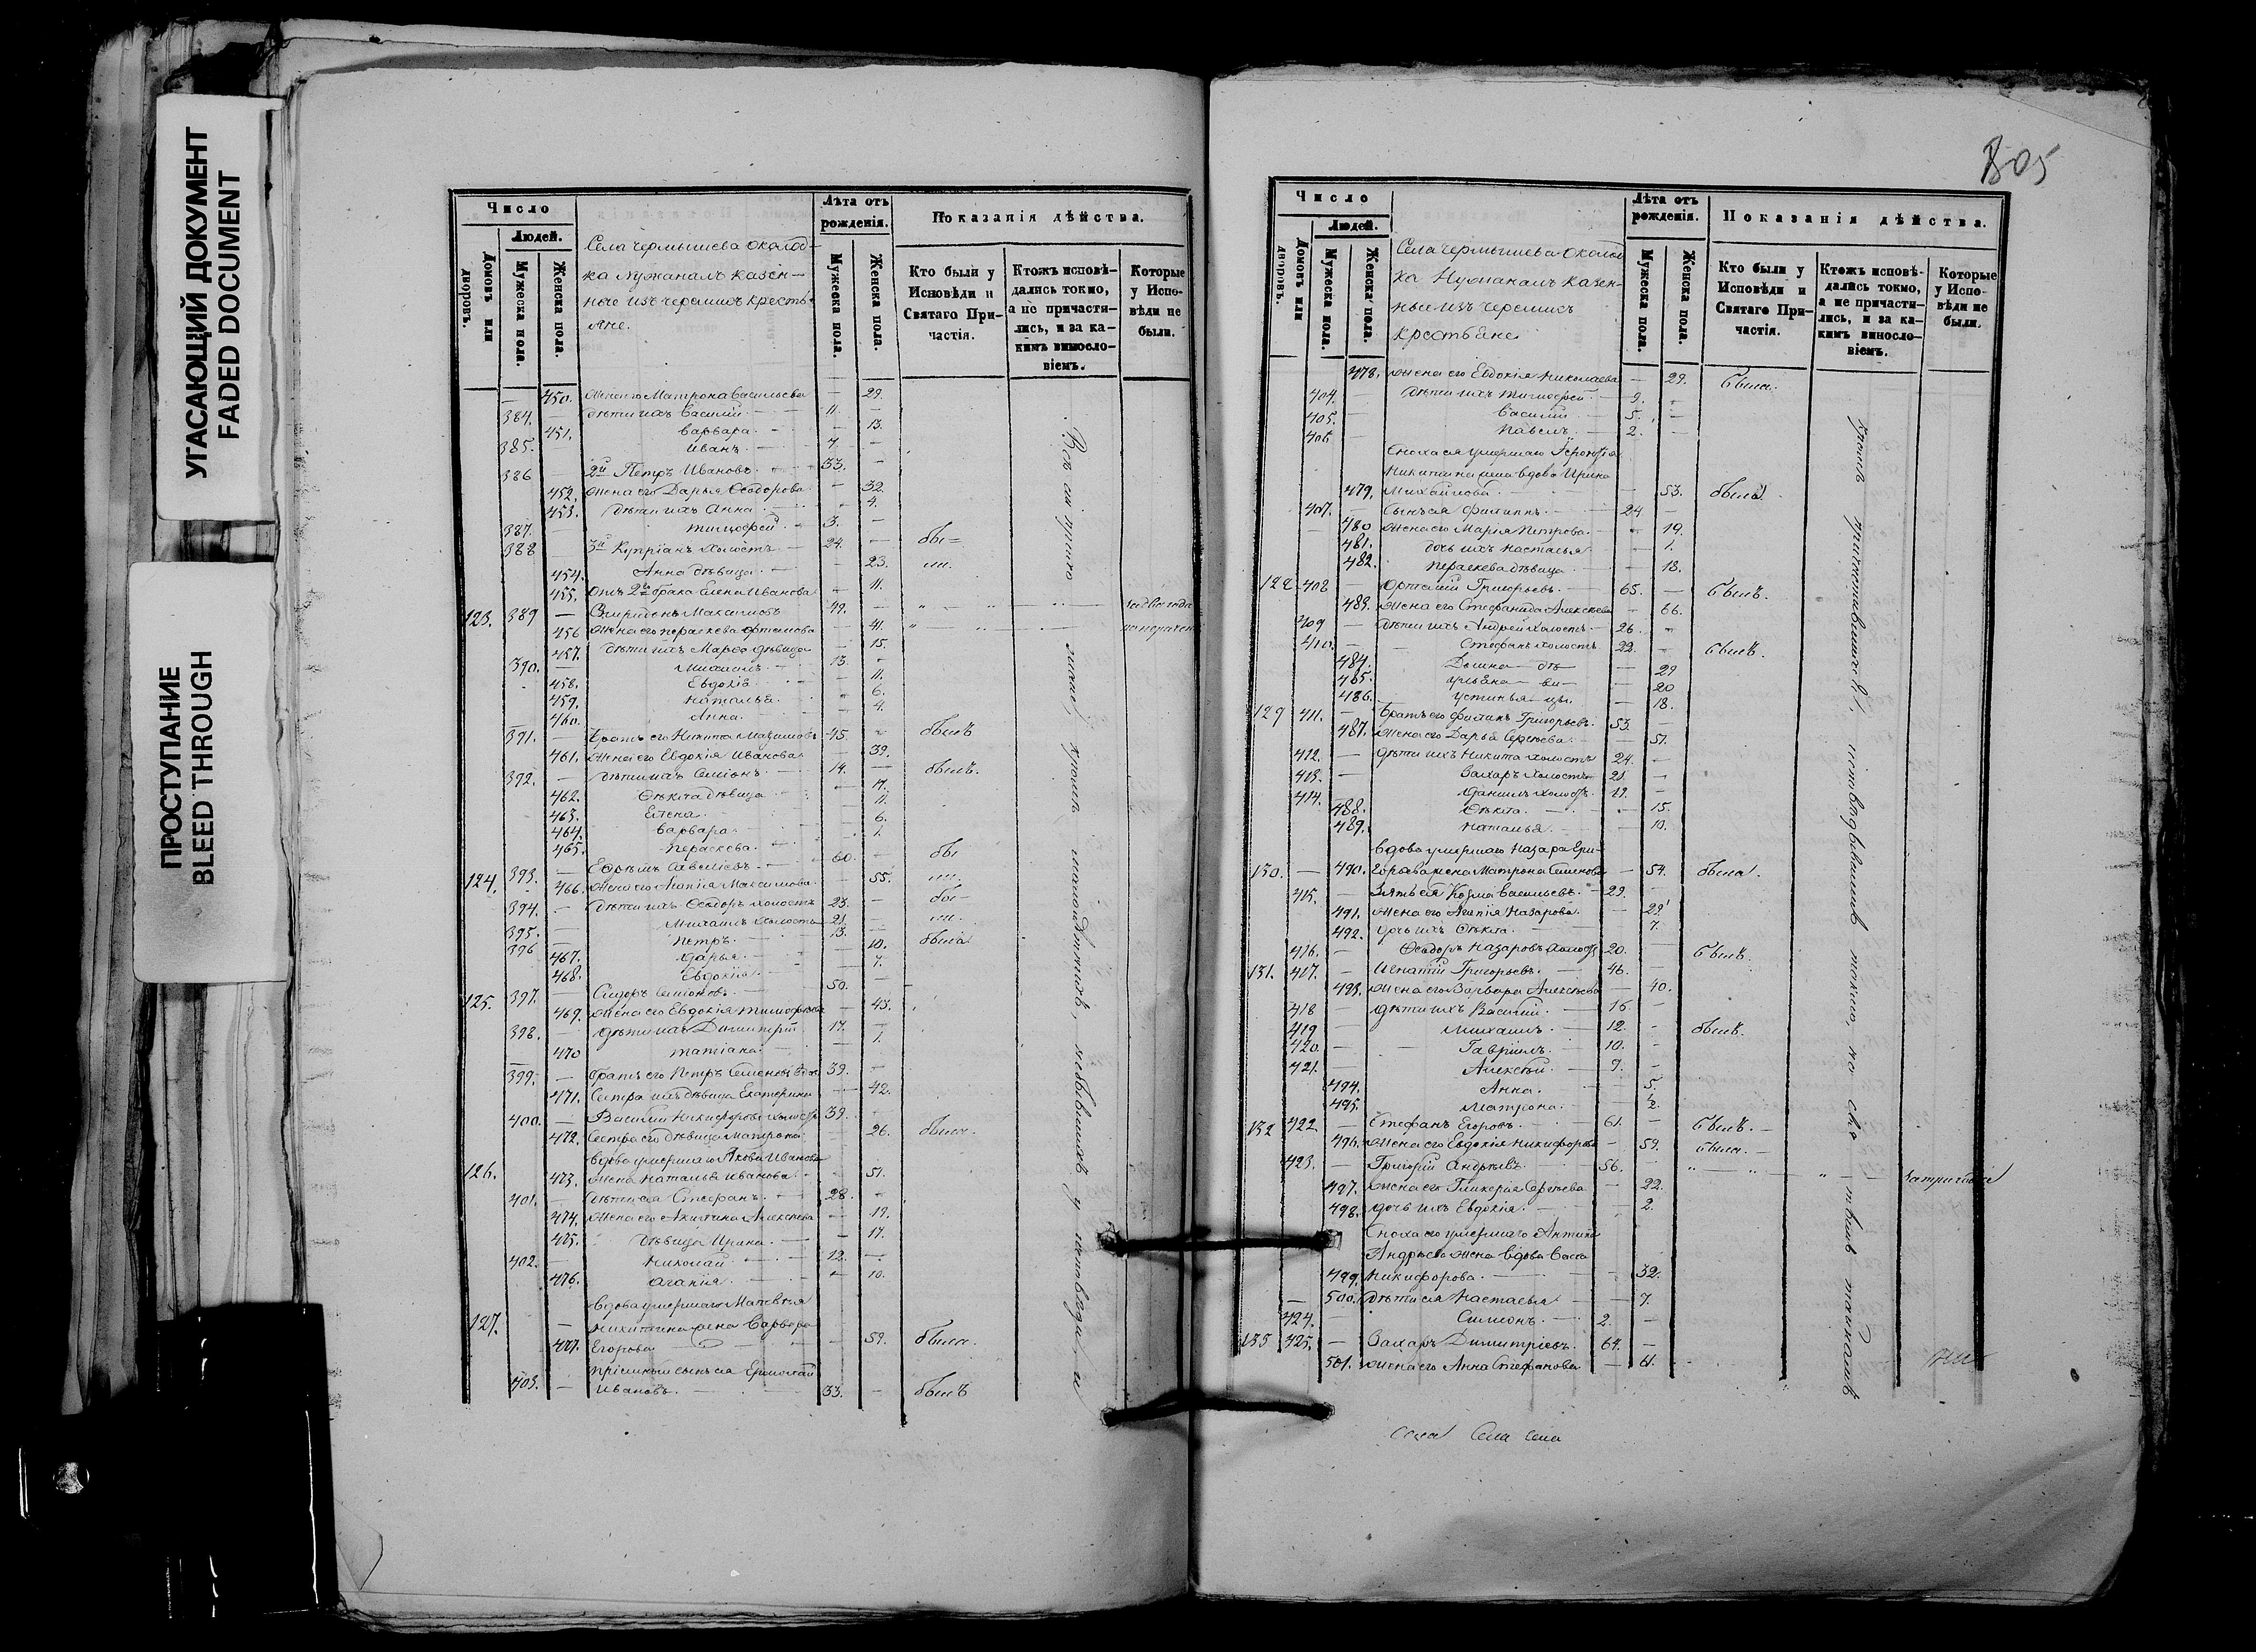 УГАСАЮЩИЙ ДОКУМЕНТ
FADED DOCUMENT
ПРОСТУПАНИЕ
BLEED THROUGH
Число
Домовъ или дворовъ.
Людей.
Мужеска пола.
Женска пола.
Села Чермышева околод-
ка Нужаналъ казен-
ные изъ черемисъ кресть-
яне.
Лѣта отъ рожденія.
Мужеска пола.
Женска пола.
Показанія дѣйства.
Кто были у Исповѣди и Святаго При-частія.
Ктожъ исповѣ-дались токмо, а не причасти-лись, и за ка-кимъ винносло-віемъ.
Которые у Испо-вѣди не были.
450. Жена его Матрона Васильева — 29.
384. — дѣти ихъ Василій 11. —
451. Варвара — 13.
385. — Иванъ 7. —
386 — 2й Петръ Ивановъ 33. —
452. Жена его Дарья Ѳеодорова — 32.
453. дѣти ихъ Анна — 4.
387. — Тимоѳей 3. —
388 — 3й Купріанъ холостъ 24. — бы=
454. Анна дѣвица — 23. ли.
455. отъ 2го брака Елена Иванова — 11.
123. 389 — Спиридонъ Максимовъ 49. —
456 Жена его Параскева Артемова — 41.
457. дѣти ихъ Марѳа дѣвица — 15.
390. — Михаилъ 13. —
458. Евдокія — 11.
459. Наталья — 6.
460. Анна — 4.
391. — Братъ его Никита Максимовъ 45. — былъ
461. Жена его Евдокія Иванова — 39.
392. — дѣти ихъ Семіонъ 14. — былъ.
462. Ѳекла дѣвица — 17.
463. Елена — 11.
464. Варвара — 6.
465. Параскева — 1.
124. 393. — Ефремъ Савеліевъ 60. — бы
466. Жена его Агапія Максимова — 55. ли.
394. — дѣти ихъ Ѳеодоръ холостъ 23. — бы—
395. — Михаилъ холостъ 21. — ли.
396 — Петръ 13. —
467. Дарья — 10. была
468. Евдокія — 7.
125. 397. — Сидоръ Семіоновъ 50. —
469. Жена его Евдокія Тимоѳеева — 43.
398. — дѣти ихъ Димитрій 17. —
470 Татіана — 1.
399. — братъ его Петръ Семеновъ вдов 39. —
471. Сестра ихъ дѣвица Екатерина — 42.
400. — Василій Никифоровъ холостъ 39. —
472. Сестра его дѣвица Матрона — 26. была.
Вдова умершаго Якова Иванова
126. 473. Жена Наталья Иванова — 51.
401. — дѣти ея Стефанъ 28. —
474. Жена его Акилина Алексѣева — 19.
475. дѣвица Ирина — 17.
402. — Николай 12. —
476. Агапія — 10.
Вдова умершаго Матвѣя
127. — Никитина жена Варвара
477. Егорова — 59. была.
пріемный сынъ ея Ермолай
403. — Ивановъ 33. — былъ
Всѣ сіи кромѣ малолѣтнихъ, небывшихъ у исповѣди и
Число
Домовъ или дворовъ.
Людей.
Мужеска пола.
Женска пола.
Села Чермышева околод
ка Нужаналъ казен-
ные изъ черемисъ
крестьяне
Лѣта отъ рожденія.
Мужеска пола.
Женска пола.
Показанія дѣйства.
Кто были у Исповѣди и Святаго При-частія.
Ктожъ исповѣ-дались токмо, а не причасти-лись, и за ка-кимъ виносло-віемъ.
Которые у Испо-вѣди не были.
478. Жена его Евдокія Николаева — 29. была.
404. — дѣти ихъ Тимоѳей 9. —
405. — Василій 5. —
406 — Павелъ 2. —
Сноха ея умершаго
Никитина жена вдова Ирина
479. Михайлова — 53. была.
407. — Сынъ ея Филиппъ 24 —
480 Жена его Марія Петрова — 19.
481. дочь ихъ Настасья — 1.
482. Параскева дѣвица — 18.
128 408 — Артемій Григорьевъ 65. — былъ.
483. Жена его Стефанида Алексѣева — 66.
409 — дѣти ихъ Андрей холостъ 26. —
410. — Стефанъ холостъ 22. — былъ.
484. Домна — дѣ — 29
485. Ульяна — ви — 20
486. Устинья цы. — 18.
129 411. — Братъ его Филипъ Григорьевъ 53. —
487. Жена его Дарья Сергѣева — 51.
412. — дѣти ихъ Никита холостъ 24. —
413. — Захаръ холостъ 21. —
414. — Даніилъ холостъ 19. —
488. Ѳекла — 15.
489. Наталья — 10.
Вдова умершаго Назара Гри-
130. — 490. горьева жена Матрона Семенова — 54. была.
415. — Зять ея Козма Васильевъ 29. —
491. Жена его Агапія Назарова — 29.
492. дочь ихъ Ѳекла — 7.
416. — Ѳеодоръ Назаровъ холостъ 20. былъ.
131. 417. — Игнатій Григорьевъ 46. —
493. Жена его Варвара Алексѣева — 40.
418 — дѣти ихъ Василій 16. —
419 — Михаилъ 12. — былъ.
420. — Гавріилъ 10. —
421. — Алексѣй 9. —
494. Анна 5.
495. Матрона 2.
132 422. — Стефанъ Егоровъ 61. — былъ.
496. Жена его Евдокія Никифорова — 59. была.
423. — Григорій Андреевъ 56. —
497. Жена его Гликерія Сергѣева — 22.
498. дочь ихъ Евдокія — 2.
Сноха его умершаго Антипа
Андреева жена вдова Васса
499. Никифорова — 32.
500. дѣти ея Настасья — 7.
424. — Симіонъ 2. —
133 425. — Захаръ Димитріевъ 64. —
501. Жена его Анна Стефанова — 61.
исповѣди токмо, но св. таинъ
села Села села